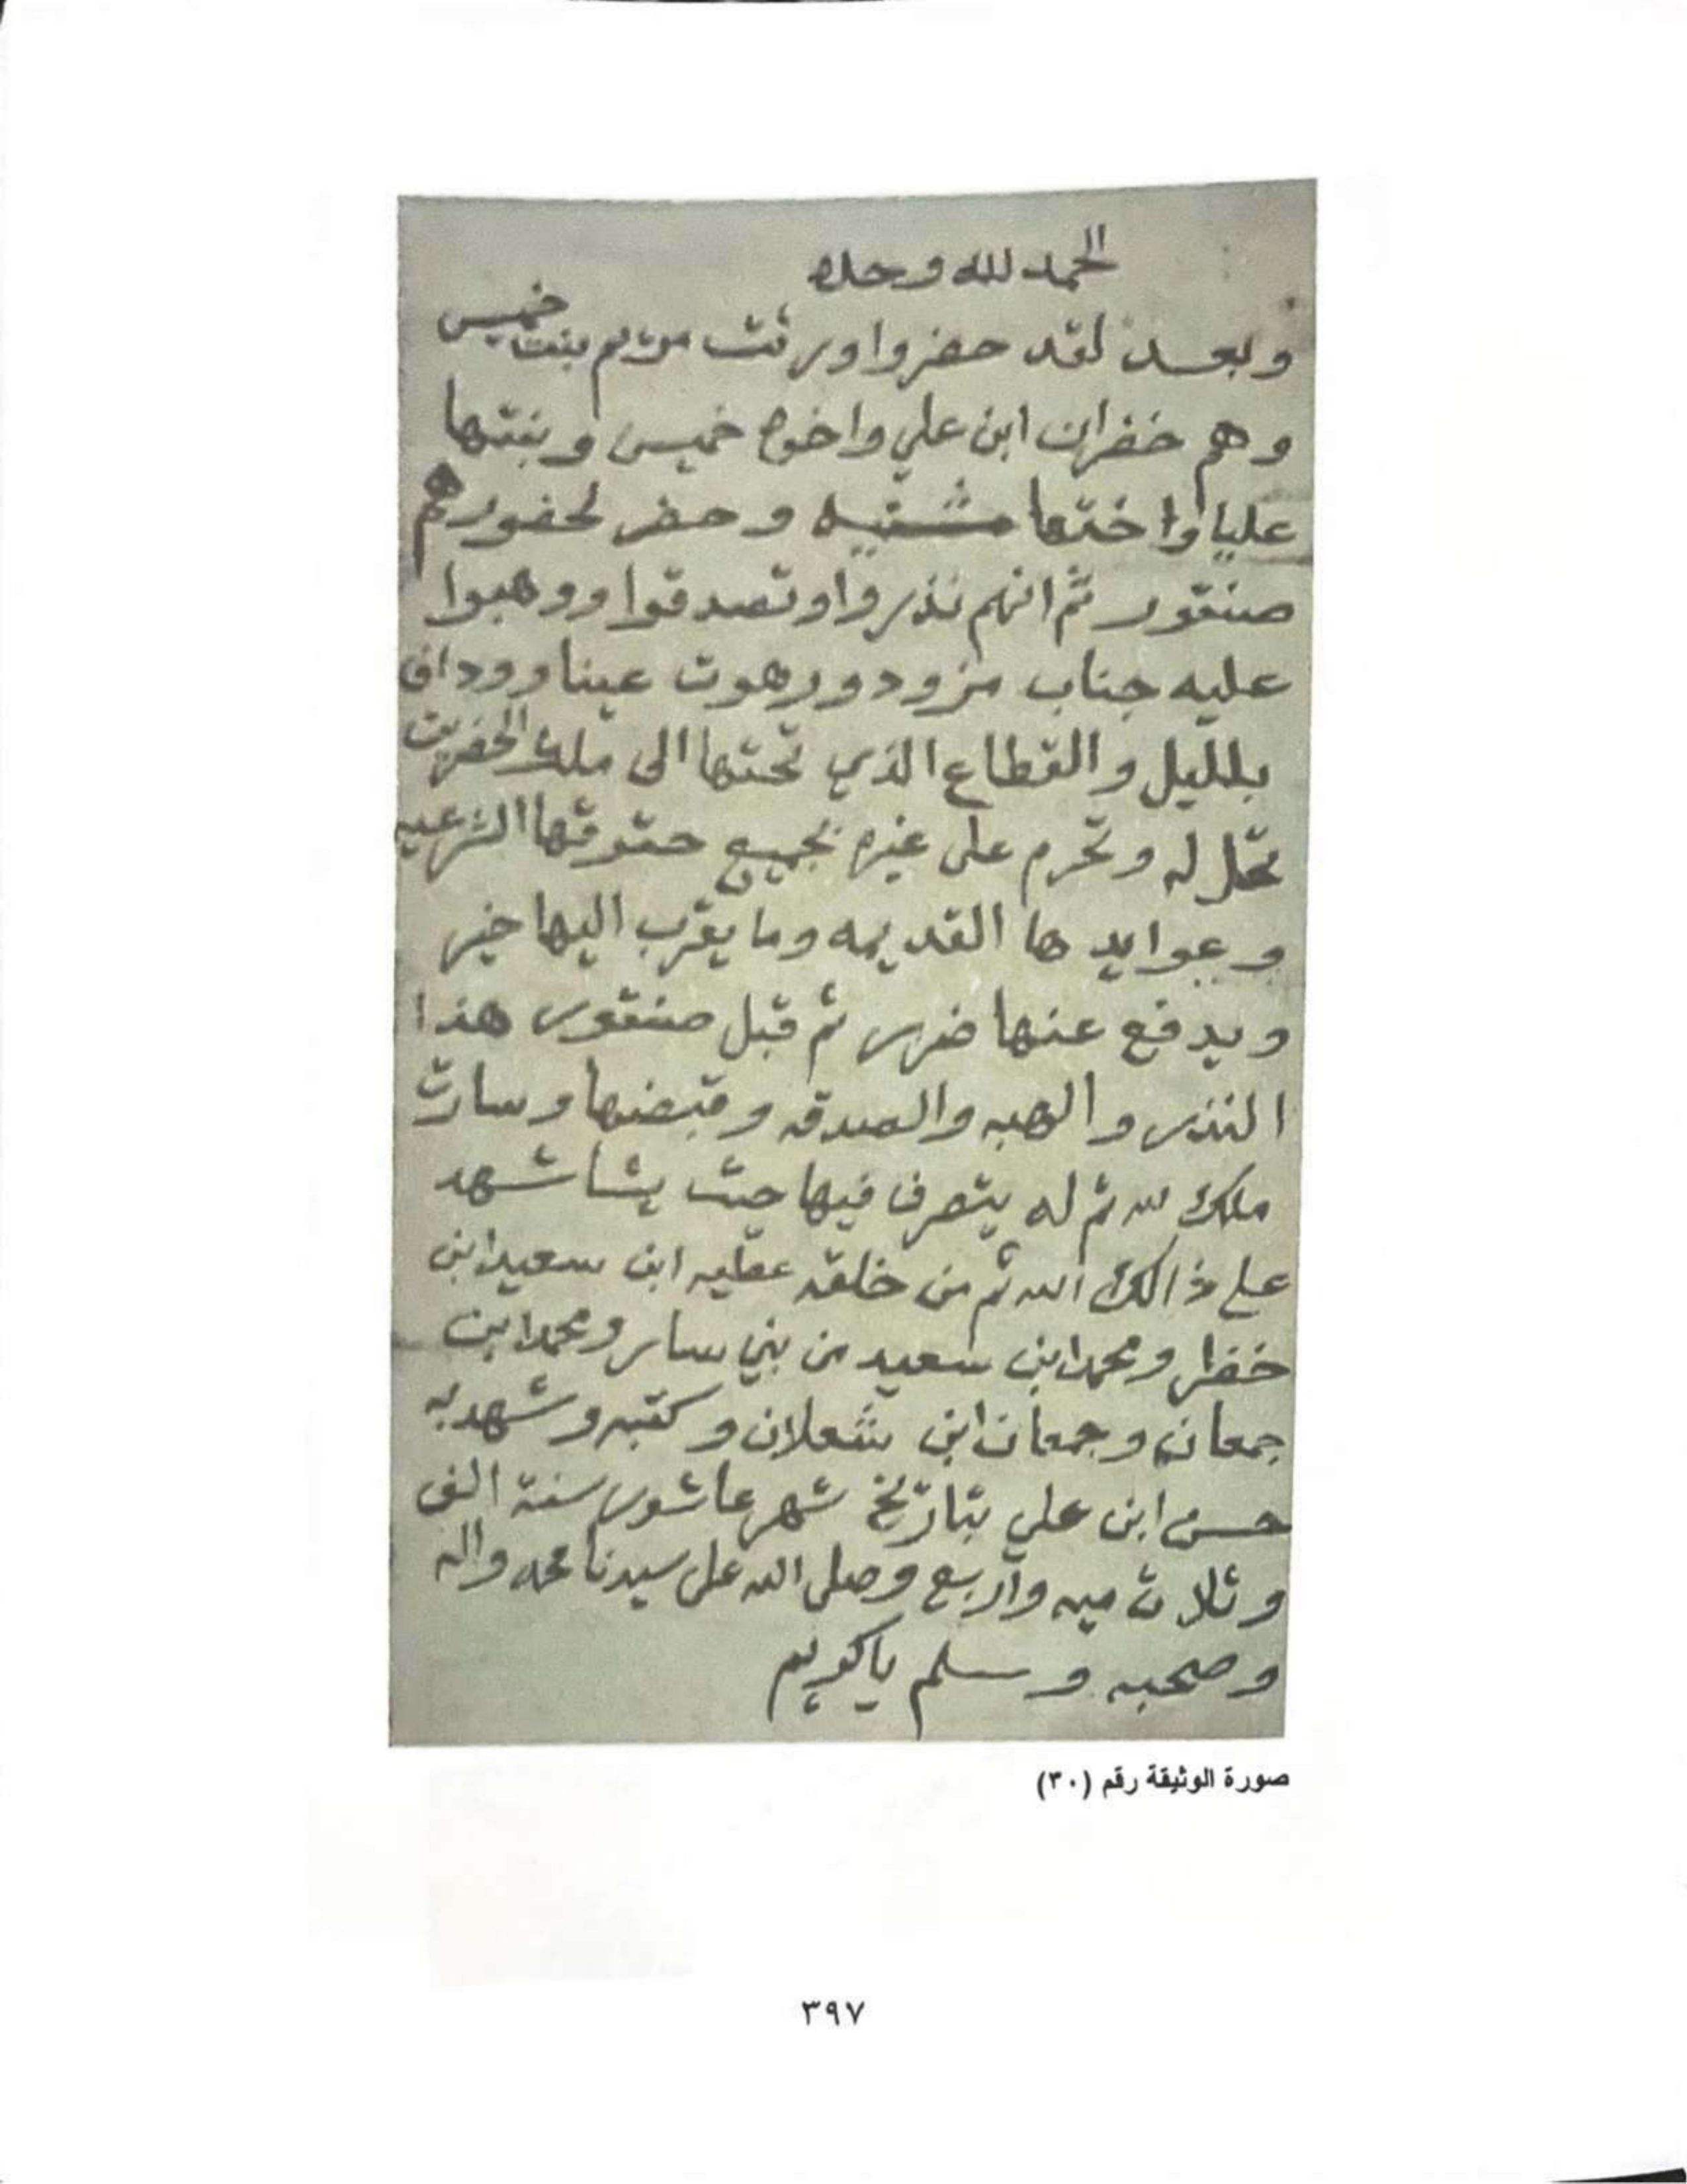 الحمد لله وحده
وبعد لقد حضروا ورثت مريم بنت خميس
وهم خضران ابن علي واخوه خميس وبنتها
عليا واختها مشنيه وحضر لحضورهم
صنقور ثم انهم نذروا وتصدقوا ووهبوا
عليه جناب مزود ورهوت عينا ووداف
بلليل والقطاع الذي تحتها الى ملك الخضران
تحل له وتحرم على غيره بجميع حقوقها الشرعيه
وعوايد ها القديمه وما يقرب اليها خير
ويدفع عنها ضرر ثم قبل صنقور هذا
النذر والهبه والصدقه وقبضها وسارت
ملك لله ثم له يتصرف فيها حيث يشا شهد
على ذالك الله ثم من خلقه عطيه ابن سعيد ابن
خضر ومحمد ابن سعيد من بني سار ومحمد ابن
جمعان وجمعان ابن شعلان وكتبه وشهد به
حسن ابن علي بتاريخ شهر عاشور سنة الف
وثلاث ميه واربع وصلى الله على سيدنا محمد واله
وصحبه وسلم ياكريم
صورة الوثيقة رقم (٣٠)
٣٩٧